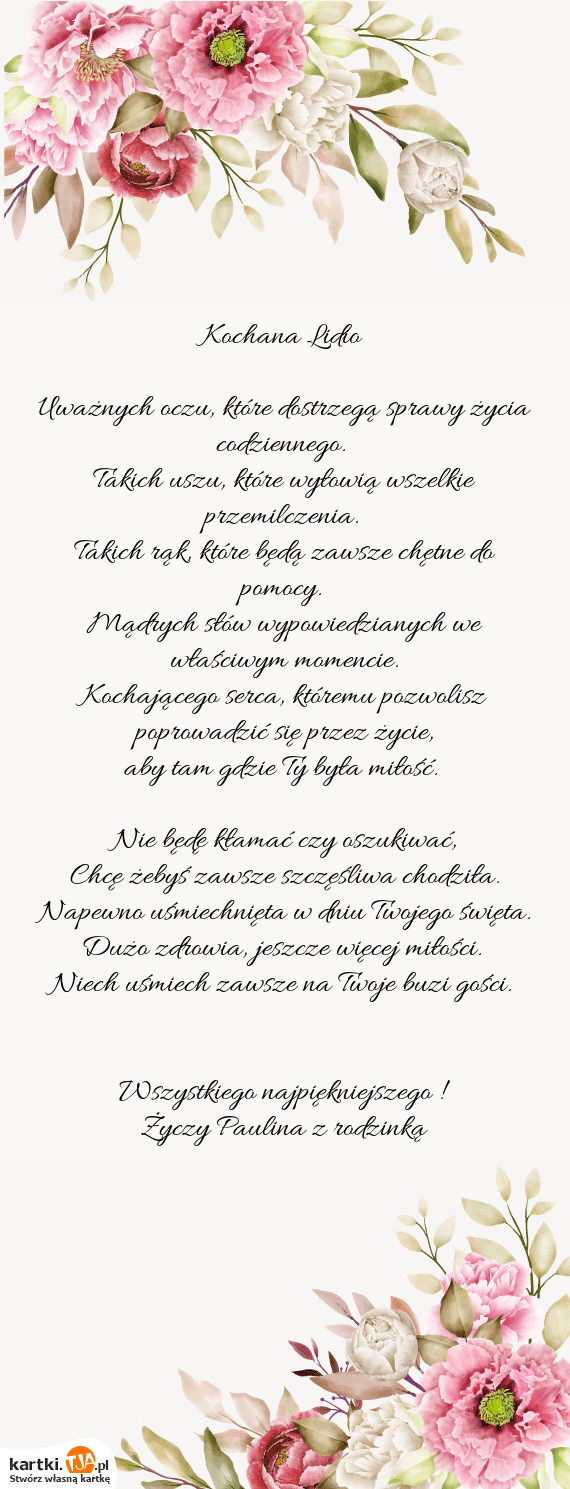 Kochana Lidio
Uważnych oczu, które dostrzegą sprawy życia
codziennego.
Takich uszu, które wyłowią wszelkie
przemilczenia.
Takich rąk, które będą zawsze chętne do
pomocy.
Mądrych słów wypowiedzianych we
właściwym momencie.
Kochającego serca, któremu pozwolisz
poprowadzić się przez życie,
aby tam gdzie Ty była miłość.
Nie będę kłamać czy oszukiwać,
Chcę żebyś zawsze szczęśliwa chodziła.
Napewno uśmiechnięta w dniu Twojego święta.
Dużo zdrowia, jeszcze więcej miłości.
Niech uśmiech zawsze na Twoje buzi gości.
Wszystkiego najpiękniejszego !
Życzy Paulina z rodzinką
kartki.TJA.pl
Stwórz własną kartkę